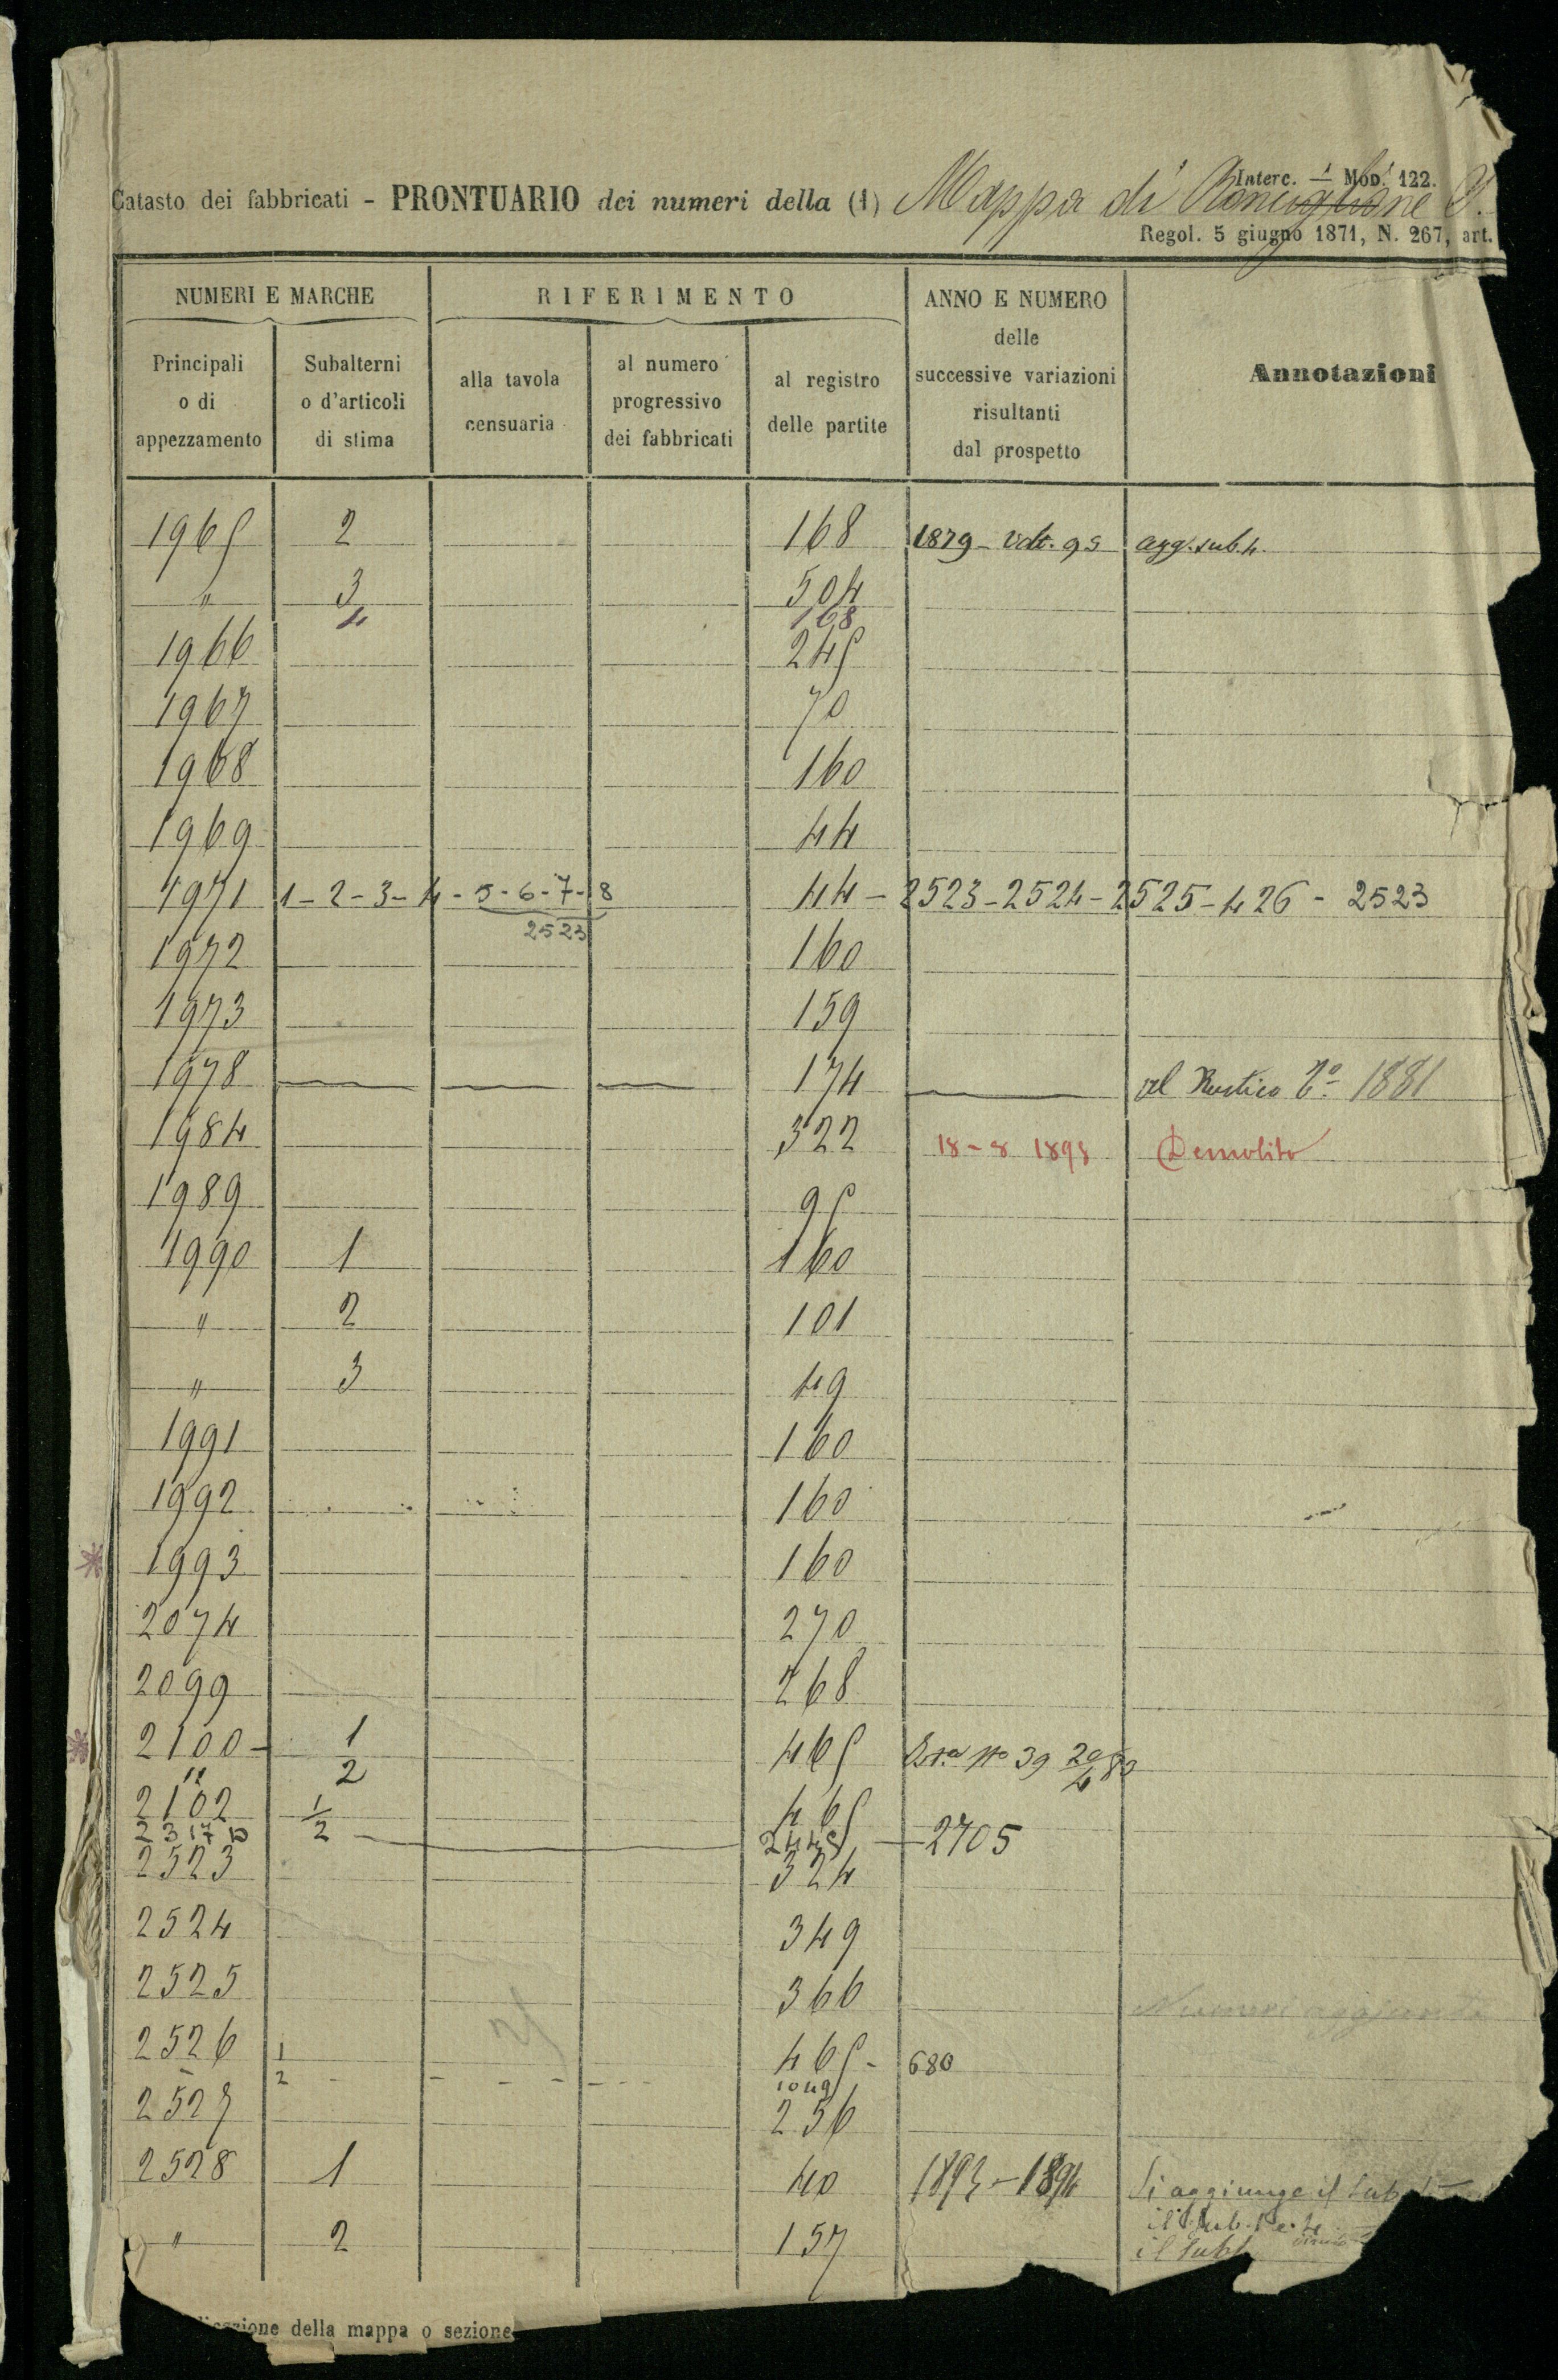 Interc. 1 Mod. 122.
Catasto dei fabbricati - PRONTUARIO dei numeri della (1) Mappa di Ronciglione
Regol. 5 giugno 1871, N. 267, art.
NUMERI E MARCHE RIFERIMENTO ANNO E NUMERO delle successive variazioni risultanti dal prospetto Annotazioni
Principali o di appezzamento Subalterni o d'articoli di stima alla tavola censuaria al numero progressivo dei fabbricati al registro delle partite
1965 2 168 1879 - Volt. 95 agg. sub. 4
" 3 504
4 168
1966 245
1967 70
1968 160
1969 44
1971 1-2-3-4-5-6-7-8 44 - 2523-2524-2525-426 - 2523
2523
1972 160
1973 159
1978 174 al Rustico 1881
1984 322 18-8 1898 Demolito
1989 95
1990 1 160
" 2 101
" 3 49
1991 160
1992 160
1993 160
2074 270
2099 268
2100 - 1 465 No 39 20/4 83
" 2
2102 1/2 465
2317 2445 - 2705
2523 324
2524 349
2525 366
Numeri aggiunti
2526 1 465 - 680
- 2
2527 256
2528 1 40 1893-1894 Si aggiunge il Sub
" 2 157 il Sub.
il Sub
della mappa o sezione